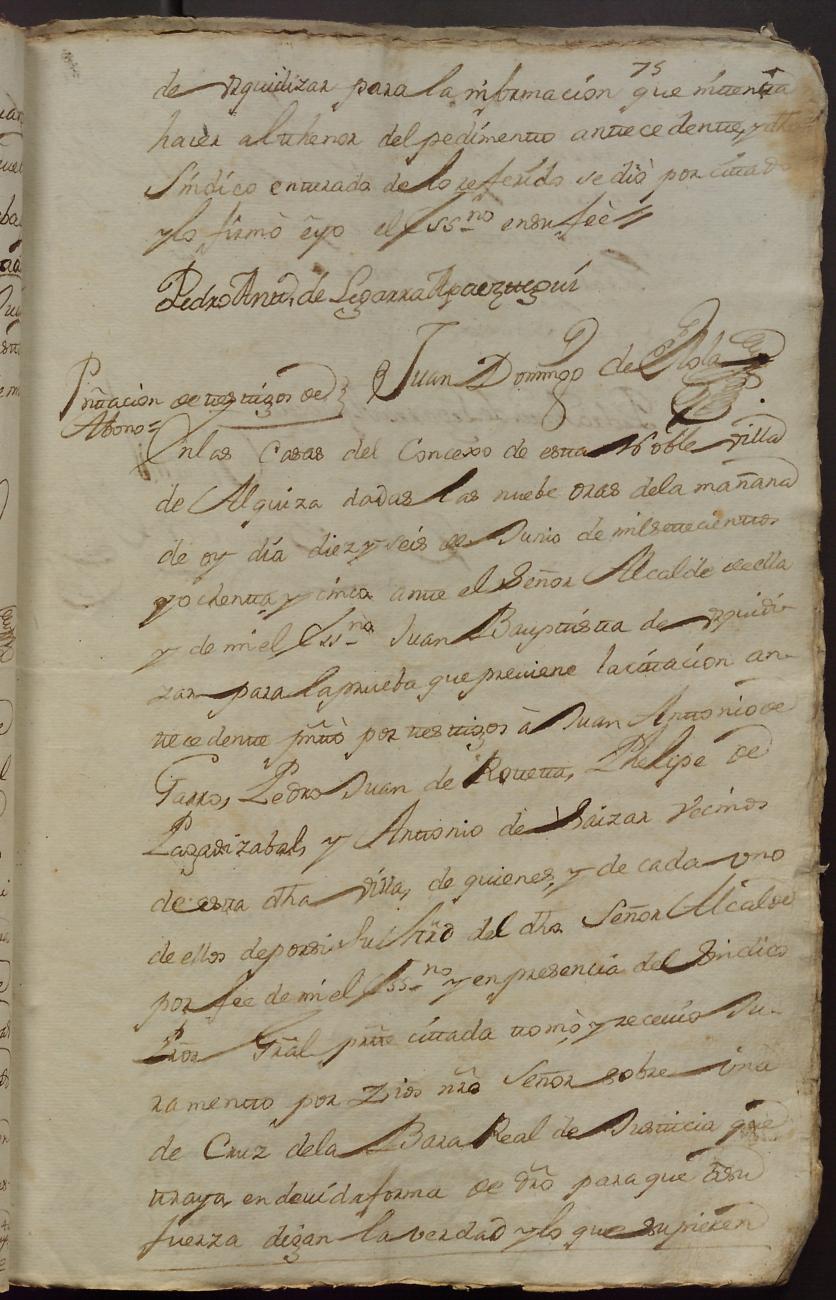 75
de Vrquidizar para la informacion que intenta
hacer al thenor del pedimento antecedente, y dho
Sindico enterado de lo referido se diò por citado
y lo firmò e yo el Essno en su feè //
Pedro Anto. de Legarra Apaeztegui
Juan Domingo de Elola
Pntacion de testigos de
Abono =
En las Casas del Concexo de esta Noble Villa
de Alquiza dadas las nuebe oras dela mañana
de oy dia diez y seis de Junio de mil setecientos
y ochenta y cinco ante el Señor Alcalde de ella
y de mi el Essno Juan Bauptista de Vrquidi-
zar para la prueba que previene la citacion an-
tecedente pntò por testigos à Juan Antonio de
Garro, Pedro Juan de Roteta, Phelipe de
Lagarizabal, y Antonio de Baizar Vecinos
de esta dha Villa, de quienes, y de cada uno
de ellos de por si su Mrd del dho Señor Alcalde
por fee de mi el Essno y en presencia del Sindico
Pror Gral prte citada tomò, y recevio Ju-
ramento por Dios nro Señor sobre una
de Cruz dela Bara Real de Justicia que
traya en devida forma de dro para que ò su
fuerza digan la verdad y lo que supieren